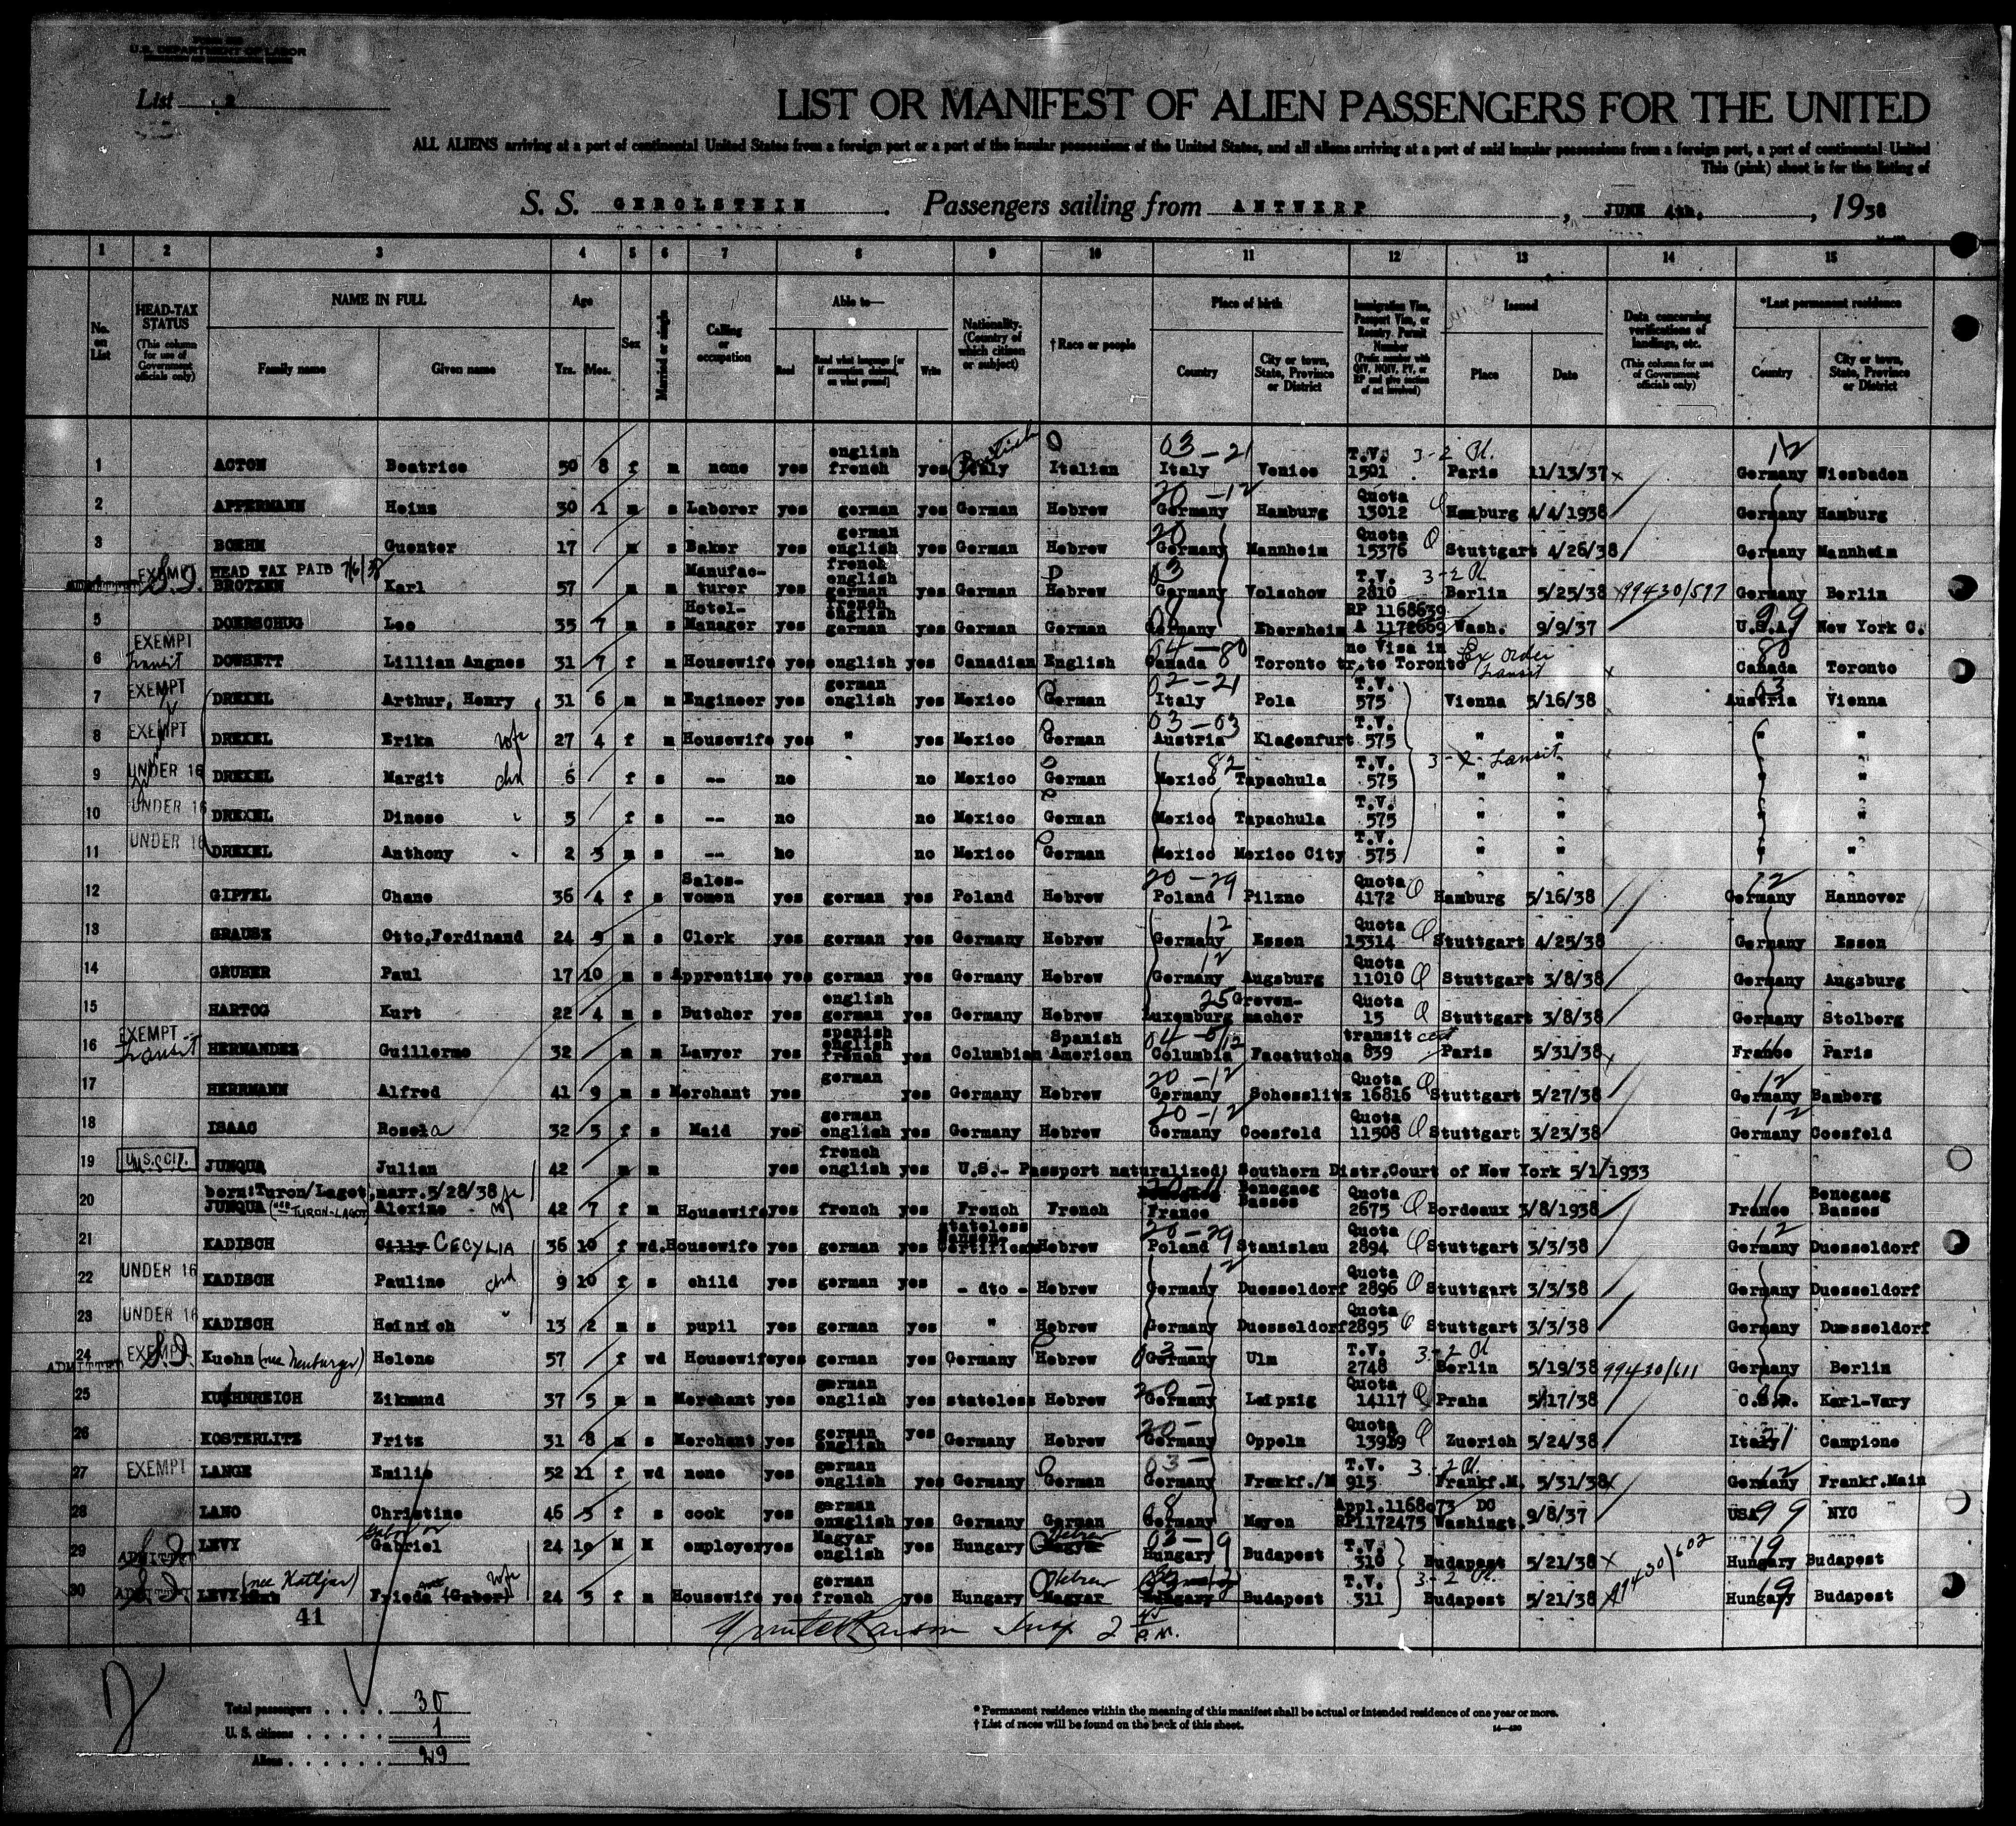 U.S. DEPARTMENT OF LABOR
List 2
LIST OR MANIFEST OF ALIEN PASSENGERS FOR THE UNITED
ALL ALIENS arriving at a port of continental United States from a foreign port or a port of the insular possessions of the United States, and all aliens arriving at a port of said insular possessions from a foreign port, a port of continental United
This (pink) sheet is for the listing of
S. S. GEROLSTEIN Passengers sailing from ANTWERP, JUNE 4th., 1938
1 2 3 4 5 6 7 8 9 10 11 12 13 14 15
No. on List
HEAD-TAX STATUS (This column for use of Government officials only)
NAME IN FULL Family name Given name
Age Yrs. Mos.
Sex
Married or single
Calling or occupation
Able to— Read Read what language [or if exemption claimed, on what ground] Write
Nationality. (Country of which citizen or subject)
†Race or people
Place of birth Country City or town, State, Province or District
Immigration Visa, Passport Visa, or Reentry Permit Number (Prefix number with QIV, NQIV, PV, or RP and give section of act involved)
Issued Place Date
Data concerning verifications of landings, etc. (This column for use of Government officials only)
*Last permanent residence Country City or town, State, Province or District
1 ACTON Beatrice 50 8 f m none yes english french yes Italy British Italian 03-21 Italy Venice T.V. 1501 3-2 Paris 11/13/37 12 Germany Wiesbaden
2 APPERMANN Heinz 30 1 m s Laborer yes german yes German Hebrew 20-12 Germany Hamburg Quota 13012 Hamburg 4/4/1938 Germany Hamburg
3 BOEHM Guenter 17 m s Baker yes german english yes German Hebrew 20 Germany Mannheim Quota 15376 Stuttgart 4/26/38 Germany Mannheim
4 ADMITTED EXEMPT S.I. HEAD TAX PAID 7/6/38 BROTZEN Karl 57 m m Manufacturer yes french english german yes German Hebrew 03 Germany Volschow T.V. 2810 3-2 Berlin 5/25/38 99430/597 Germany Berlin
5 DOERSCHUG Leo 35 7 m s Hotel-Manager yes french english german yes German German 08 Germany Ebersheim RP 1168639 A 1172669 Wash. 9/9/37 99 U.S.A. New York C.
6 EXEMPT Transit DOWSETT Lillian Angnes 31 7 f m Housewife yes english yes Canadian English 04-80 Canada Toronto no Visa in tr.to Toronto Ex order transit 80 Canada Toronto
7 EXEMPT DREXEL Arthur, Henry 31 6 m m Engineer yes german english yes Mexico German 02-21 Italy Pola T.V. 575 Vienna 5/16/38 03 Austria Vienna
8 EXEMPT DREXEL Erika wfe 27 4 f m Housewife yes " yes Mexico German 03-03 Austria Klagenfurt T.V. 575 " " " "
9 UNDER 16 DREXEL Margit chd 6 f s -- no no Mexico German 82 Mexico Tapachula T.V. 575 3-2 transit " " " "
10 UNDER 16 DREXEL Dinese " 5 f s -- no no Mexico German Mexico Tapachula T.V. 575 " " " "
11 UNDER 16 DREXEL Anthony " 2 3 m s -- no no Mexico German Mexico Mexico City T.V. 575 " " " "
12 GIPFEL Chane 36 4 f s Sales-women yes german yes Poland Hebrew 20-29 Poland Pilzno Quota 4172 Hamburg 5/16/38 12 Germany Hannover
13 GRAUSZ Otto,Ferdinand 24 9 m s Clerk yes german yes Germany Hebrew 12 Germany Essen Quota 15314 Stuttgart 4/25/38 Germany Essen
14 GRUBER Paul 17 10 m s Apprentine yes german yes Germany Hebrew 12 Germany Augsburg Quota 11010 Stuttgart 3/8/38 Germany Augsburg
15 HARTOG Kurt 22 4 m s Butcher yes english german yes Germany Hebrew 25 Luxemburg Greven-macher Quota 15 Stuttgart 3/8/38 Germany Stolberg
16 EXEMPT Transit HERNANDEZ Guillermo 32 m m Lawyer yes spanish english french yes Columbian Spanish American Columbia Facatutcha transit cert 839 Paris 5/31/38 France Paris
17 HERRMANN Alfred 41 9 m s Merchant yes german yes Germany Hebrew 20-12 Germany Schesslitz Quota 16816 Stuttgart 5/27/38 12 Germany Bamberg
18 ISAAC Rosela 32 5 f s Maid yes german english yes Germany Hebrew 20-12 Germany Coesfeld Quota 11508 Stuttgart 3/23/38 12 Germany Coesfeld
19 U.S. CIT. JUNQUA Julian 42 m m yes french english yes U.S.- Passport naturalized; Southern Distr.Court of New York 5/1/1933
20 born:Turon/Lagot,marr.5/28/38 JUNQUA (nee TURON-LAGOT) Alexine wfe 42 7 f m Housewife yes french yes French French France Benegaeg Basses Quota 2675 Bordeaux 3/8/1938 11 France Benegaeg Basses
21 KADISCH Cilly CECYLIA 36 10 f wd. Housewife yes german yes stateless Nansen Certificate Hebrew 20-29 Poland Stanislau Quota 2894 Stuttgart 3/3/38 12 Germany Duesseldorf
22 UNDER 16 KADISCH Pauline chd 9 10 f s child yes german yes - dto - Hebrew 12 Germany Duesseldorf Quota 2896 Stuttgart 3/3/38 Germany Duesseldorf
23 UNDER 16 KADISCH Heinrich " 13 2 m s pupil yes german yes " Hebrew Germany Duesseldorf Quota 2895 Stuttgart 3/3/38 Germany Duesseldorf
24 ADMITTED EXEMPT S.I. Kuehn (nee Neuburger) Helene 57 f wd Housewife yes german yes Germany Hebrew 03- Germany Ulm T.V. 2748 3-2 Berlin 5/19/38 99430/611 Germany Berlin
25 KUEHNREICH Zikmund 37 5 m m Merchant yes german english yes stateless Hebrew 20- Germany Leipzig Quota 14117 Praha 5/17/38 C.S.R. Karl-Vary
26 KOSTERLITZ Fritz 31 8 m s Merchant yes german english yes Germany Hebrew 20- Germany Oppeln Quota 13989 Zuerich 5/24/38 21 Italy Campione
27 EXEMPT LANGE Emilie 52 11 f wd none yes german english yes Germany German 03- Germany Frankf./M T.V. 915 3-2 Frankf.M. 5/31/38 12 Germany Frankf.Main
28 LANG Christine 46 5 f s cook yes german english yes Germany German 08 Germany Mayen Appl.1168073 DC RP1172475 Washingt. 9/8/37 99 USA NYC
29 ADMITTED S.I. LEVY Gabriel 24 10 M M employer yes Magyar english yes Hungary Magyar Hebrew 03-19 Hungary Budapest T.V. 310 Budapest 5/21/38 19 Hungary Budapest
30 ADMITTED S.I. LEVY Frieda (Gabor) wfe 24 5 f m Housewife yes german french yes Hungary Magyar Hebrew Hungary Budapest T.V. 311 3-2 Budapest 5/21/38 99430/602 19 Hungary Budapest
41
Insp 2 45 P.M.
Total passengers 30
U. S. citizens 1
Aliens 29
* Permanent residence within the meaning of this manifest shall be actual or intended residence of one year or more.
† List of races will be found on the back of this sheet.